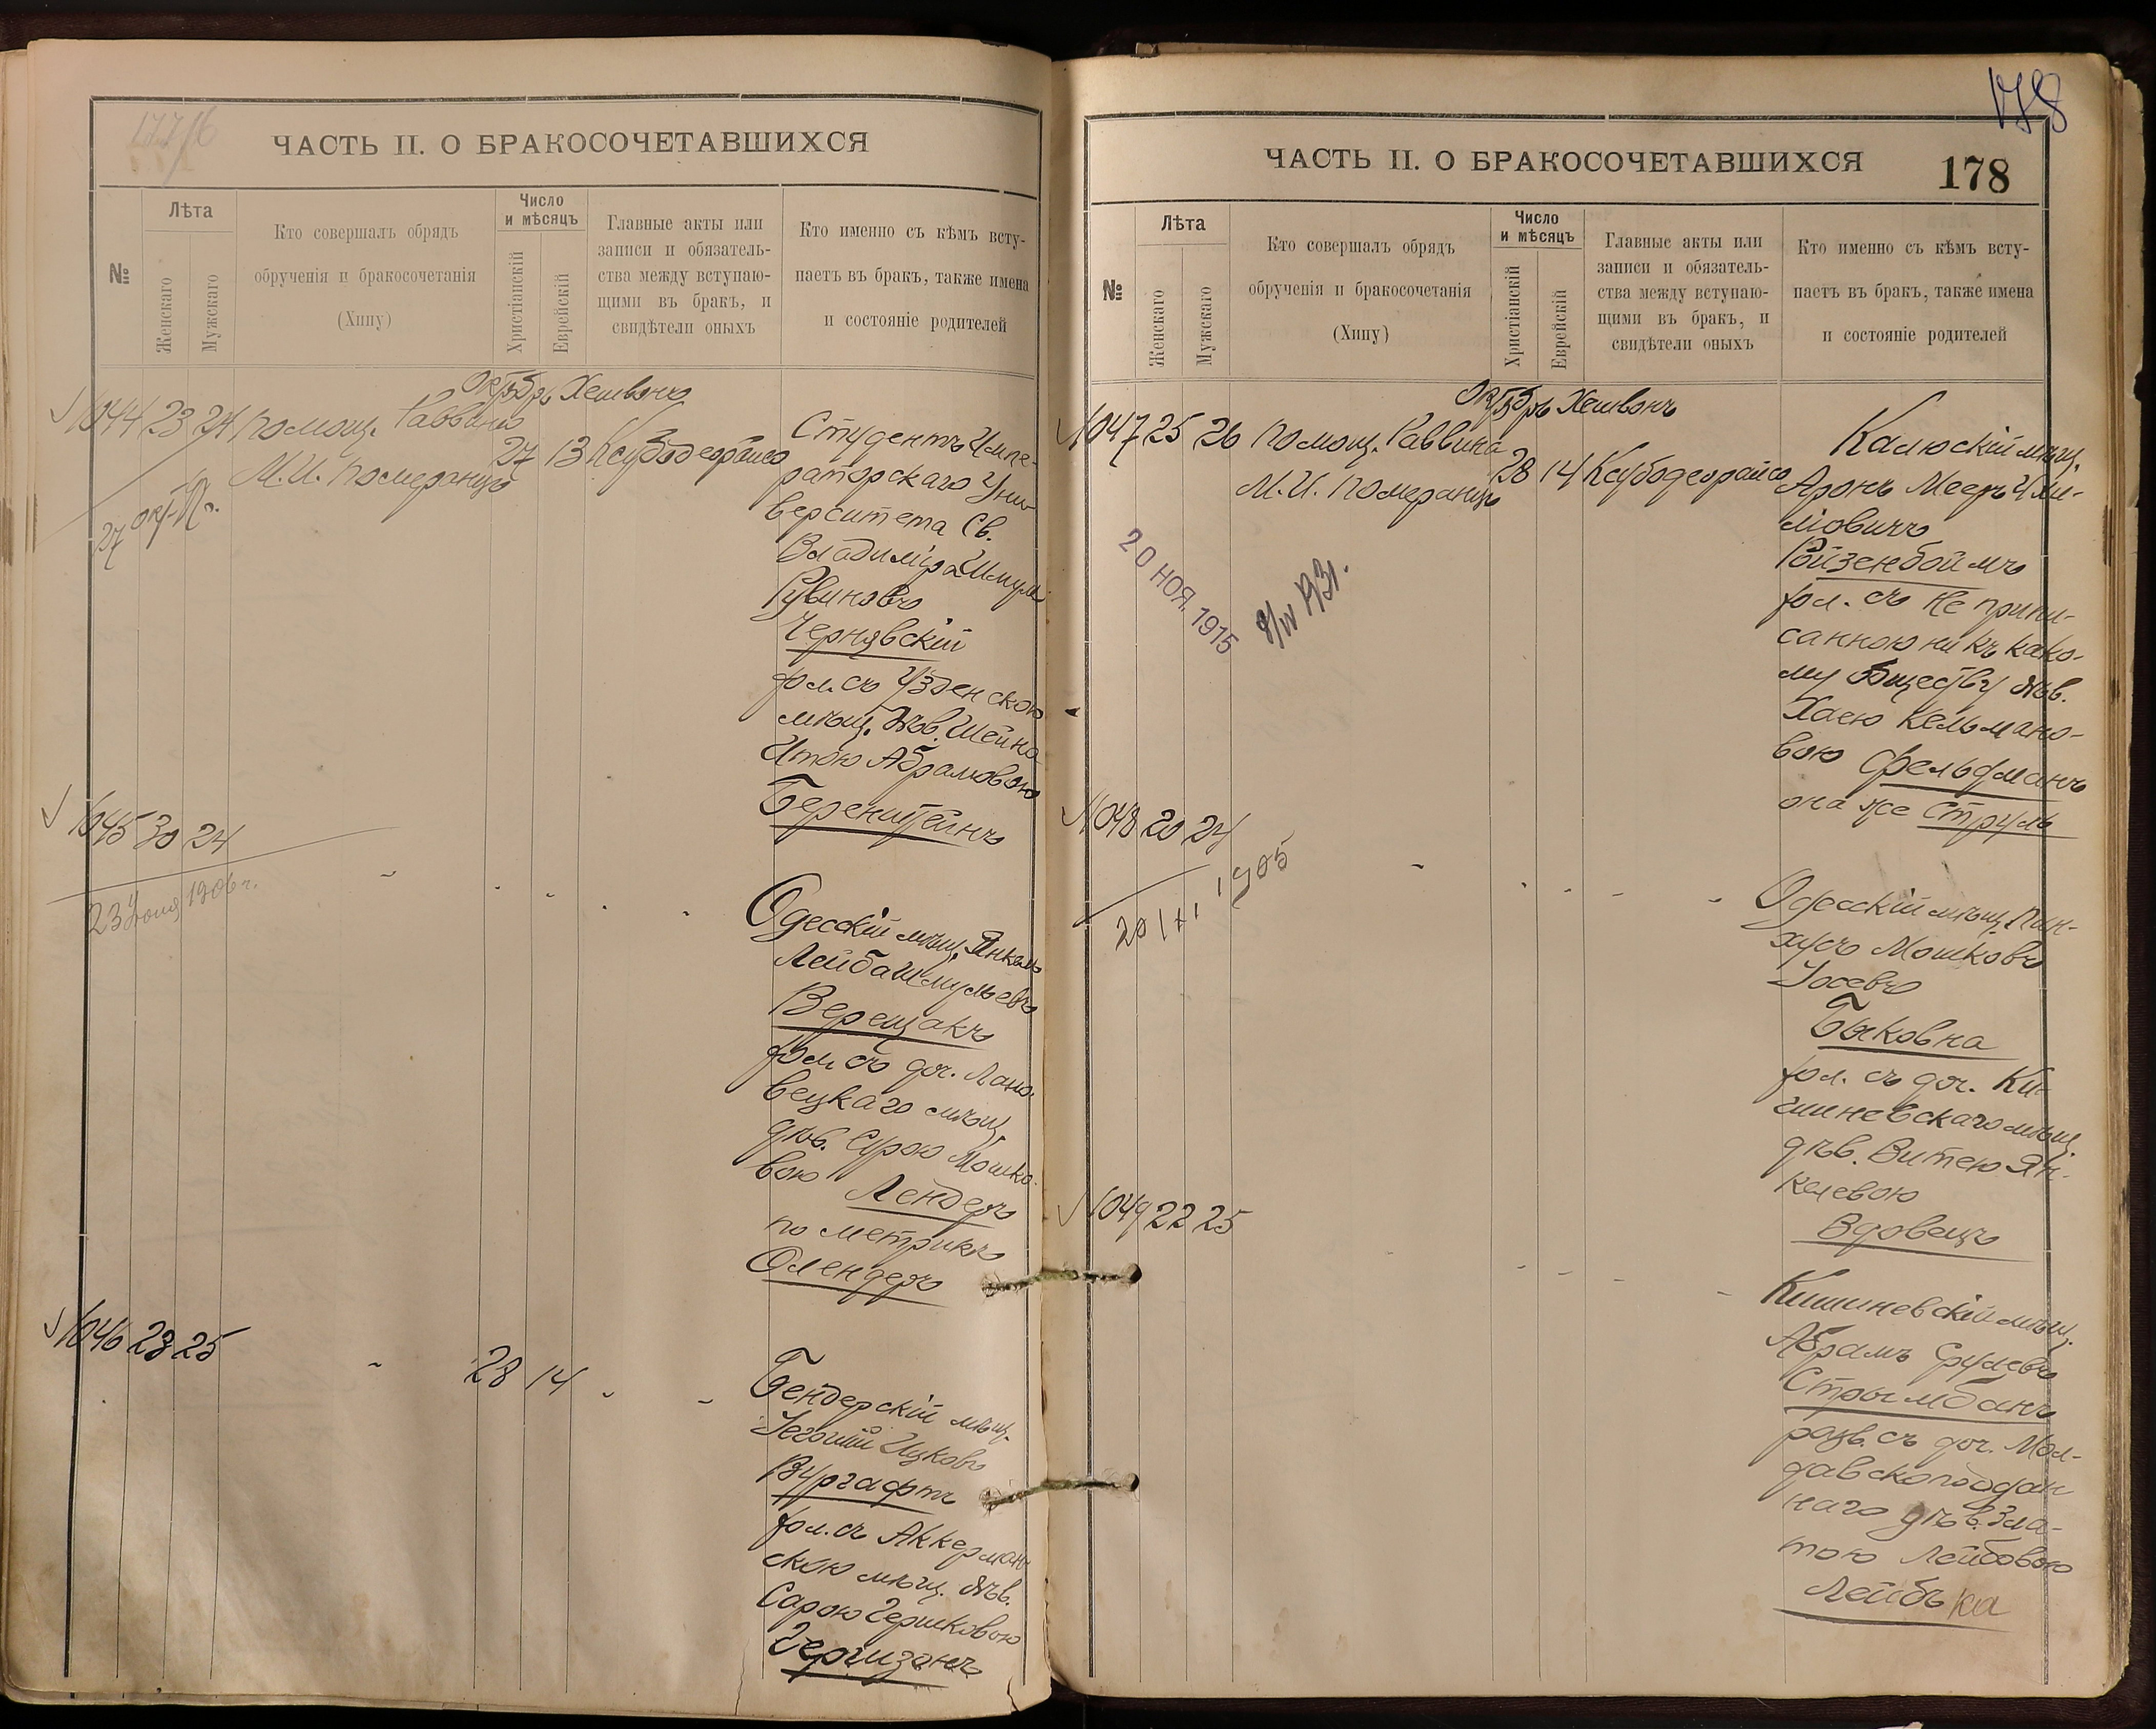 177/б
ЧАСТЬ II. О БРАКОСОЧЕТАВШИХСЯ
№
Лѣта
Женскаго
Мужскаго
Кто совершалъ обрядъ
обрученія и бракосочетанія
(Хипу)
Число
и мѣсяцъ
Христіанскій
Еврейскій
Главные акты или
записи и обязатель-
ства между вступаю-
щими въ бракъ, и
свидѣтели оныхъ
Кто именно съ кѣмъ всту-
паетъ въ бракъ, также имена
и состояніе родителей
Октябрь Хешвонъ
1044 23 24 Помощ. Раввина
М. И. Померанцъ
27 13 Ксубодеорайса
27 окт.
Студентъ Импе-
раторскаго Уни-
верситета Св.
Владиміра Шмуль
Рувиновъ
Чернявскій
хол. съ Узденскою
мѣщ. дѣв. Шейна
Итою Абрамовою
Беренштейнъ
1045 30 24
23 Іюня 1906 г.
Одесскій мѣщ. Янкель
Лейба Шмульевъ
Верещакъ
хол. съ доч. Лано-
вецкаго мѣщ.
дѣв. Сурою Мошко-
вою Лендеръ
по метрикѣ
Олендеръ
1046 23 25
28 14
Бендерскій мѣщ.
Ицковъ
Вургафтъ
хол. съ Аккерман-
скою мѣщ. дѣв.
Сарою Гершковою
Гершзонъ
178
ЧАСТЬ II. О БРАКОСОЧЕТАВШИХСЯ
178
№
Лѣта
Женскаго
Мужскаго
Кто совершалъ обрядъ
обрученія и бракосочетанія
(Хипу)
Число
и мѣсяцъ
Христіанскій
Еврейскій
Главные акты или
записи и обязатель-
ства между вступаю-
щими въ бракъ, и
свидѣтели оныхъ
Кто именно съ кѣмъ всту-
паетъ въ бракъ, также имена
и состояніе родителей
Октябрь Хешвонъ
1047 25 26 Помощ. Раввина
М. И. Померанцъ
28 14 Ксубодеорайса
20 НОЯ. 1915
Калюскій мѣщ.
Аронъ Мееръ Хаи-
мовичъ
Ройзенбоймъ
хол. съ не припи-
санною ни къ како-
му обществу дѣв.
Хаею Кельмано-
вою Фельдманъ
она же Струль
1048 20 24
20/XI 1905
Одесскій мѣщ. Пин-
хусъ Мошковъ
Іосевъ
Быковна
хол. съ доч. Ки-
шиневскаго мѣщ.
дѣв. Витею Ян-
келевою
Вдовецъ
1049 22 25
Кишиневскій мѣщ.
Абрамъ Срулевъ
Стрымбанъ
разв. съ доч. Мол-
давскоподдан
наго дѣв. Зла-
тою Лейбовою
Лейбъка